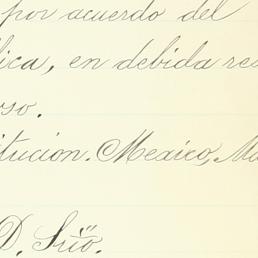 por acuerdo del
lica, en debida res
so.
itucion. Mexico, Ma
D. Srio.